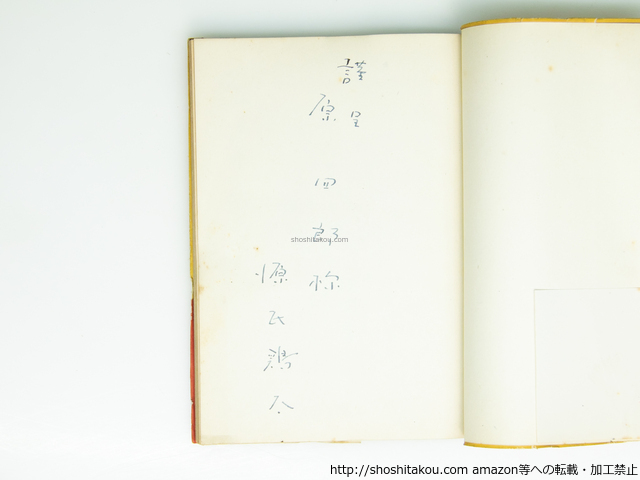 謹呈
原四郎様
源氏鶏太
shoshitakou.com
http://shoshitakou.com amazon等への転載・加工禁止